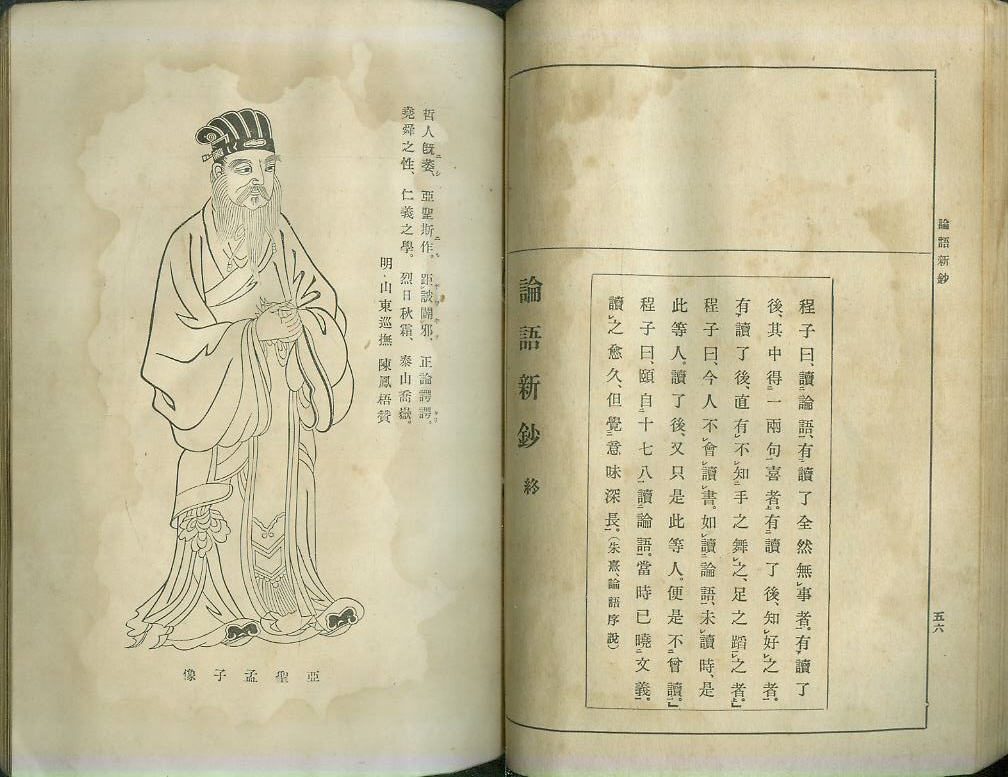 論語新鈔
五六
程子曰、讀論語、有讀了全然無事者。有讀了
後、其中得一兩句喜者。有讀了後、知好之者。
有讀了後、直有不知手之舞之、足之蹈之者。』
程子曰、今人不會讀書。如讀論語、未讀時、是
此等人。讀了後、又只是此等人。便是不曾讀。』
程子曰、頤自十七八讀論語。當時已曉文義。
讀之愈久、但覺意味深長。（朱熹、論語序說）
論語新鈔 終
哲人既萎、亞聖斯作。距詖闢邪、正論諤諤。
堯舜之性、仁義之學。烈日秋霜、泰山喬嶽。
明・山東巡撫 陳鳳梧贊
亞聖孟子像